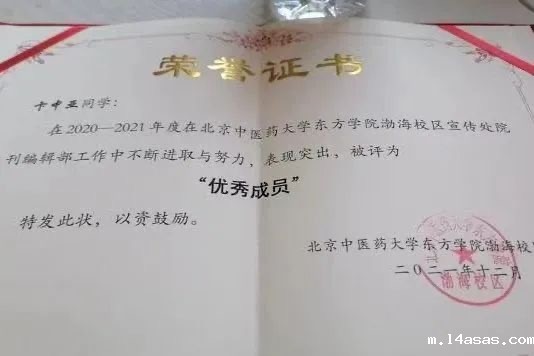 荣誉证书
同学：
在2020—2021年度在北京中医药大学东方学院渤海校区宣传处院
刊编辑部工作中不断进取与努力，表现突出，被评为
“优秀成员”
特发此状，以资鼓励。
北京中医药大学东方学院渤海校
二〇二一年十二月
渤海校区
m.14asas.com